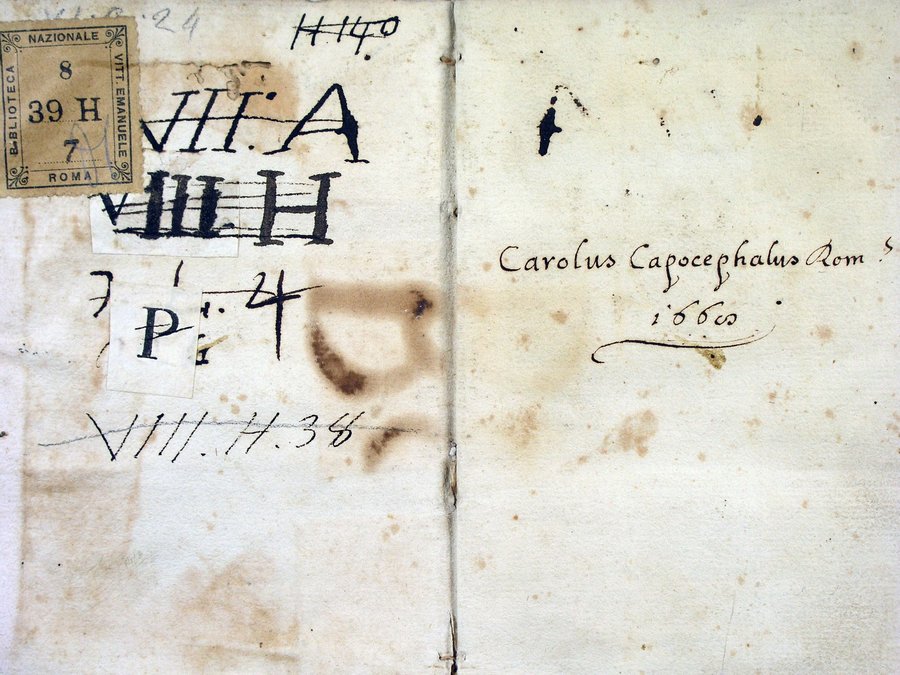 NAZIONALE
BIBLIOTECA
VITT. EMANUELE
8
39 H
7
ROMA
H 140
VII. A
VIII. H
4
P
VIII. H. 38
Carolus Capocephalus Rom.s